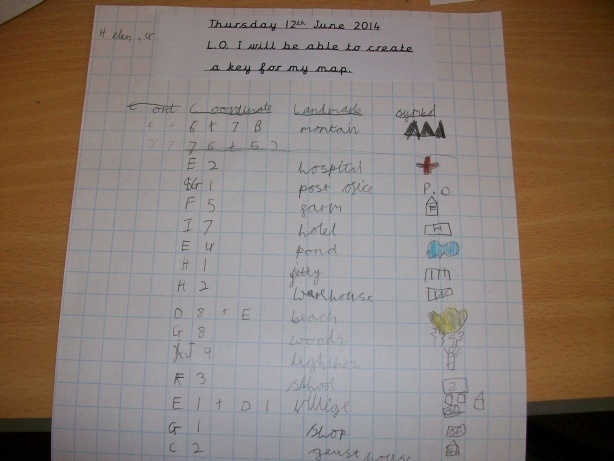 Helen. sr
Thursday 12th June 2014
L.O. I will be able to create
a key for my map.
Coordinate Landmark symbol
6 + 7 B montain
E 2 hospital
G 1 post ofice P.O
F 5 farm F
I 7 hotel H
E 4 pond
H 1 jetty
H 2 Warehouse W
D 8 + E beach
G 8 woods
J 9
F 3
E 1 + D 1
G 1 shop
C 2 geust house